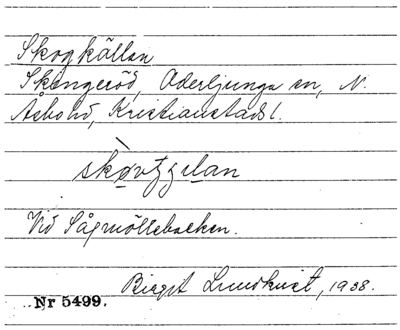 Skogkällan
Skengeröd, Oderljunga sn, N.
Åsbo hd, Kristianstads l.
Vid Sågmöllebacken.
Birgit Lundkvist, 1938.
Nr 5499.